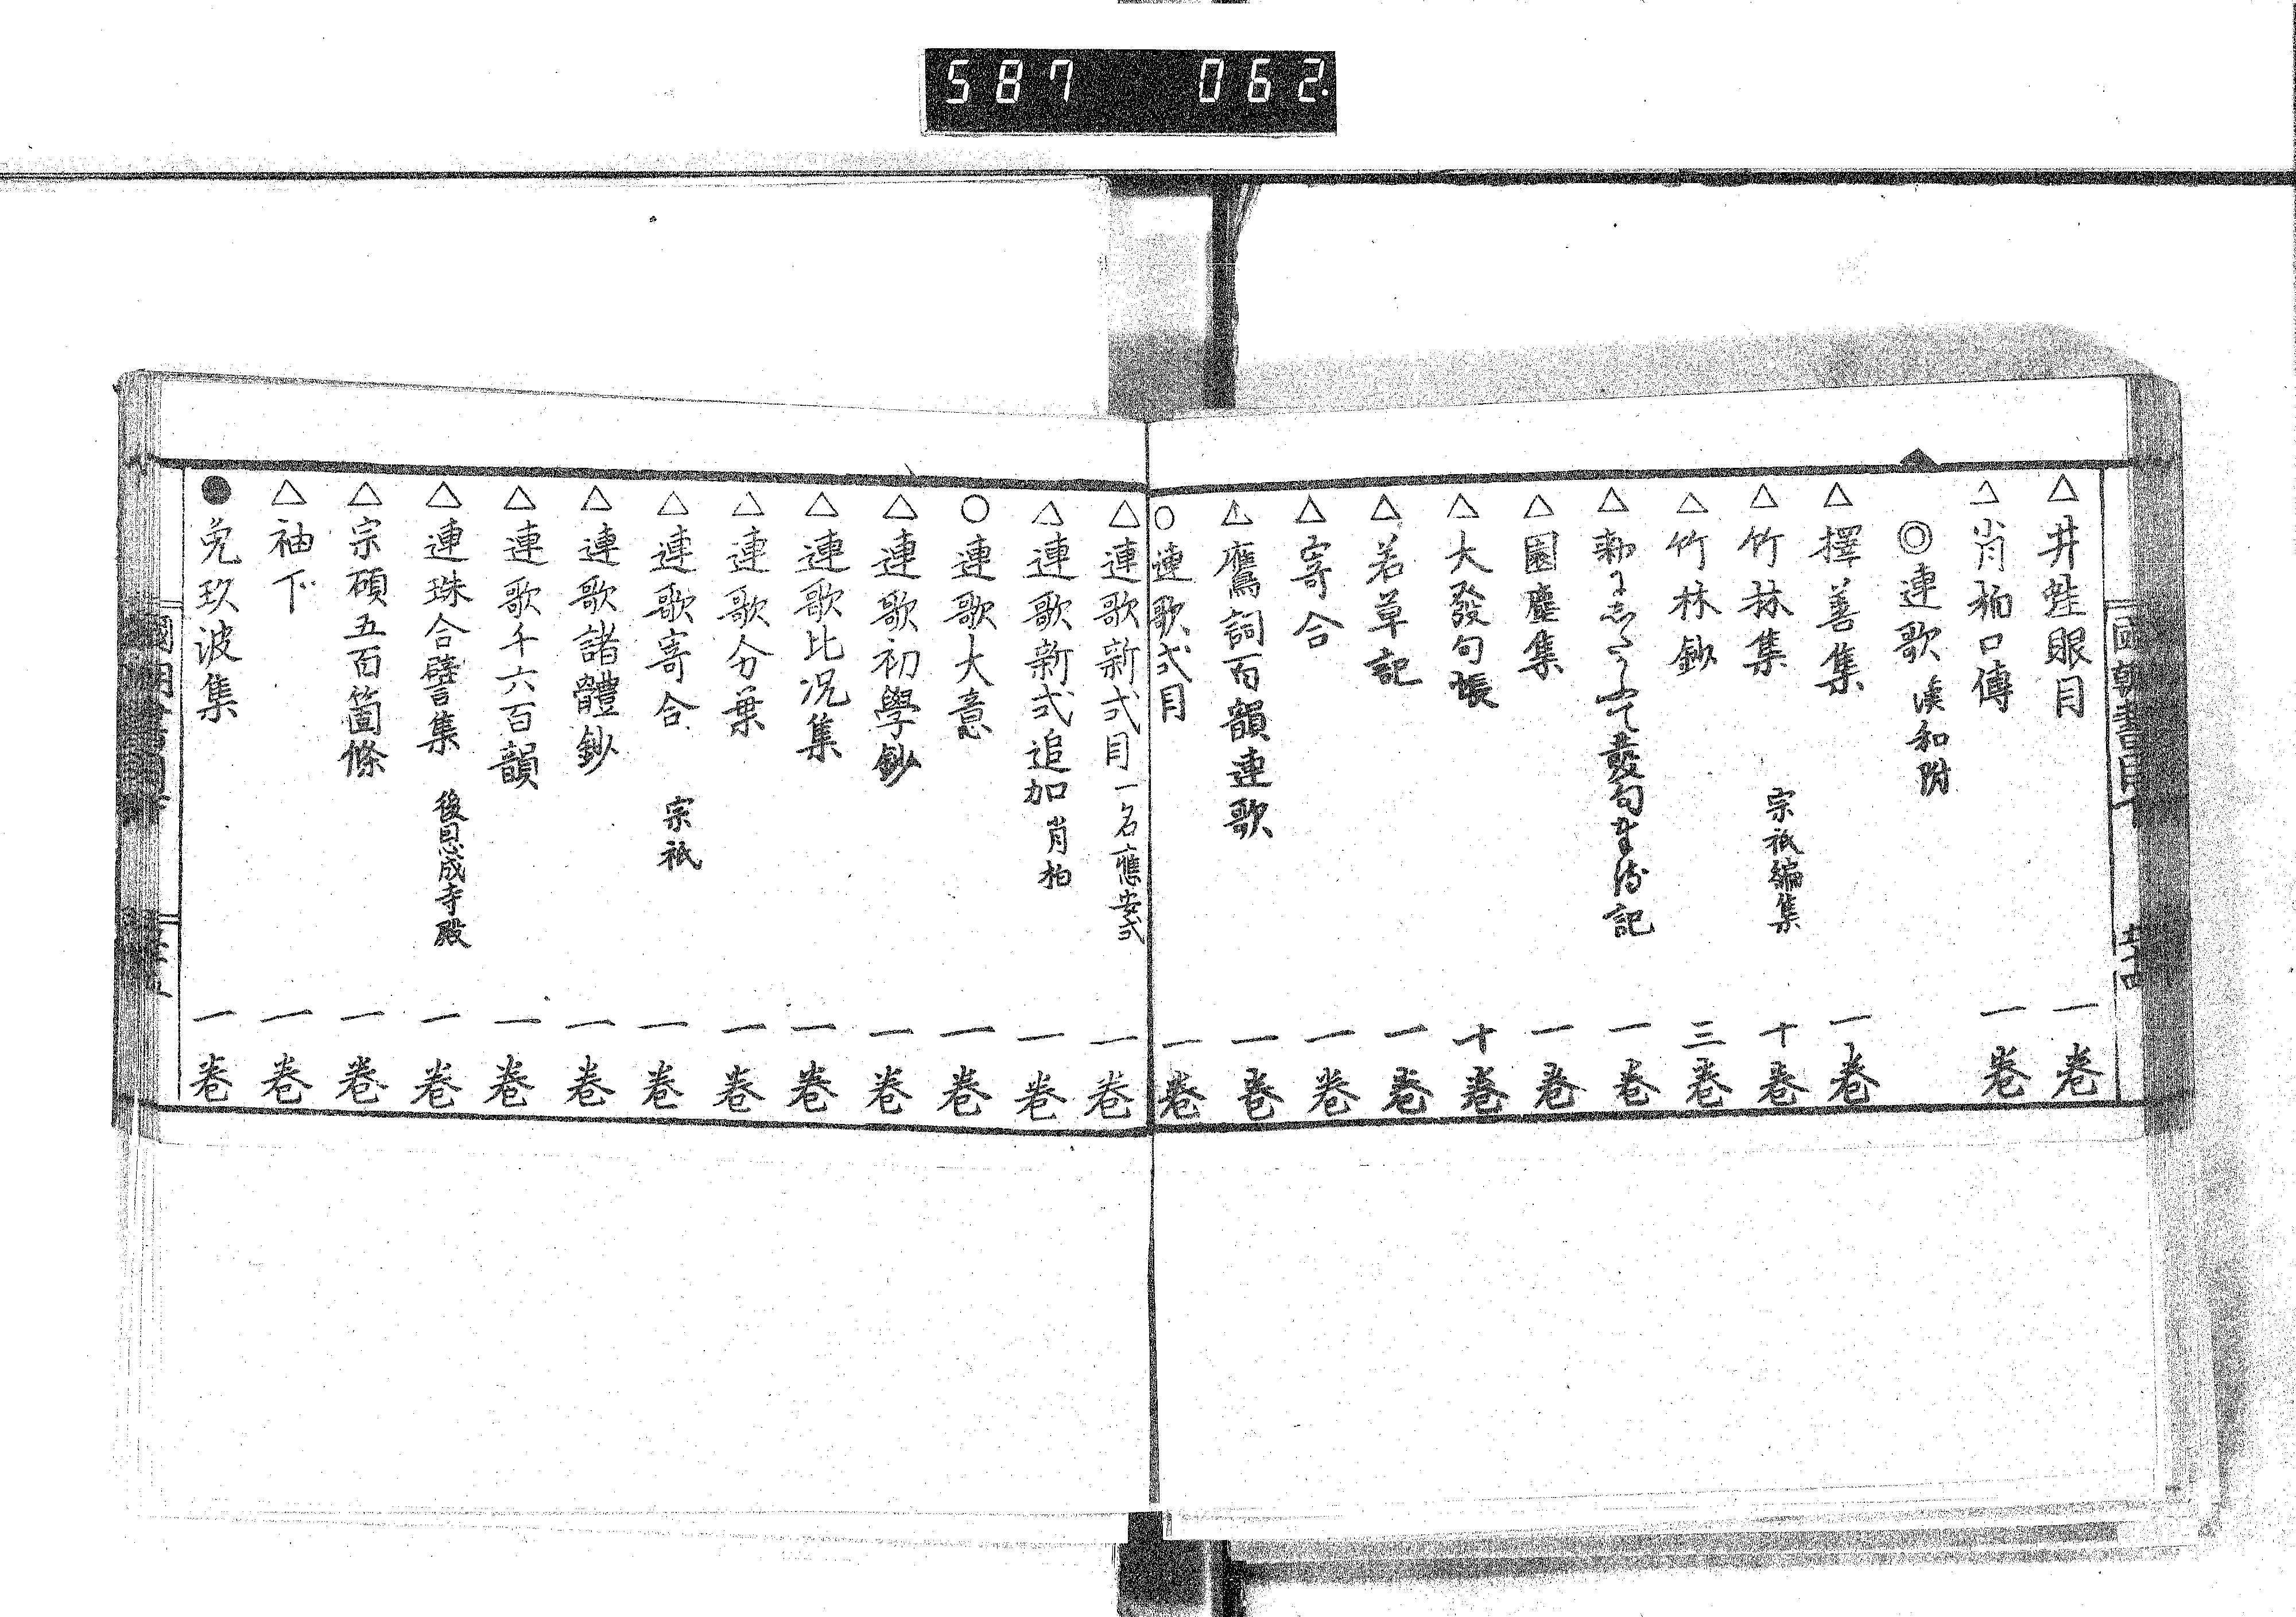 587 062
國朝書目下
△井蛙眼目 一卷
△肖柏口傳 一卷
◎連歌 漢和附
△擇善集 一卷
△竹林集 宗祇編集 十卷
△竹林鈔 三卷
△發句 記 一卷
△園塵集 一卷
△大發句帳 十卷
△若草記 一卷
△寄合 一卷
△鷹詞百韻連歌 一卷
○連歌式目 一卷
△連歌新式目 一名應安式 一卷
△連歌新式追加 肖柏 一卷
○連歌大意 一卷
△連歌初學鈔 一卷
△連歌比況集 一卷
△連歌分葉 一卷
△連歌寄合 宗祇 一卷
△連歌諸體鈔 一卷
△連歌千六百韻 一卷
△連珠合璧集 後恩成寺殿 一卷
△宗碩五百箇條 一卷
△袖下 一卷
●兎玖波集 一卷